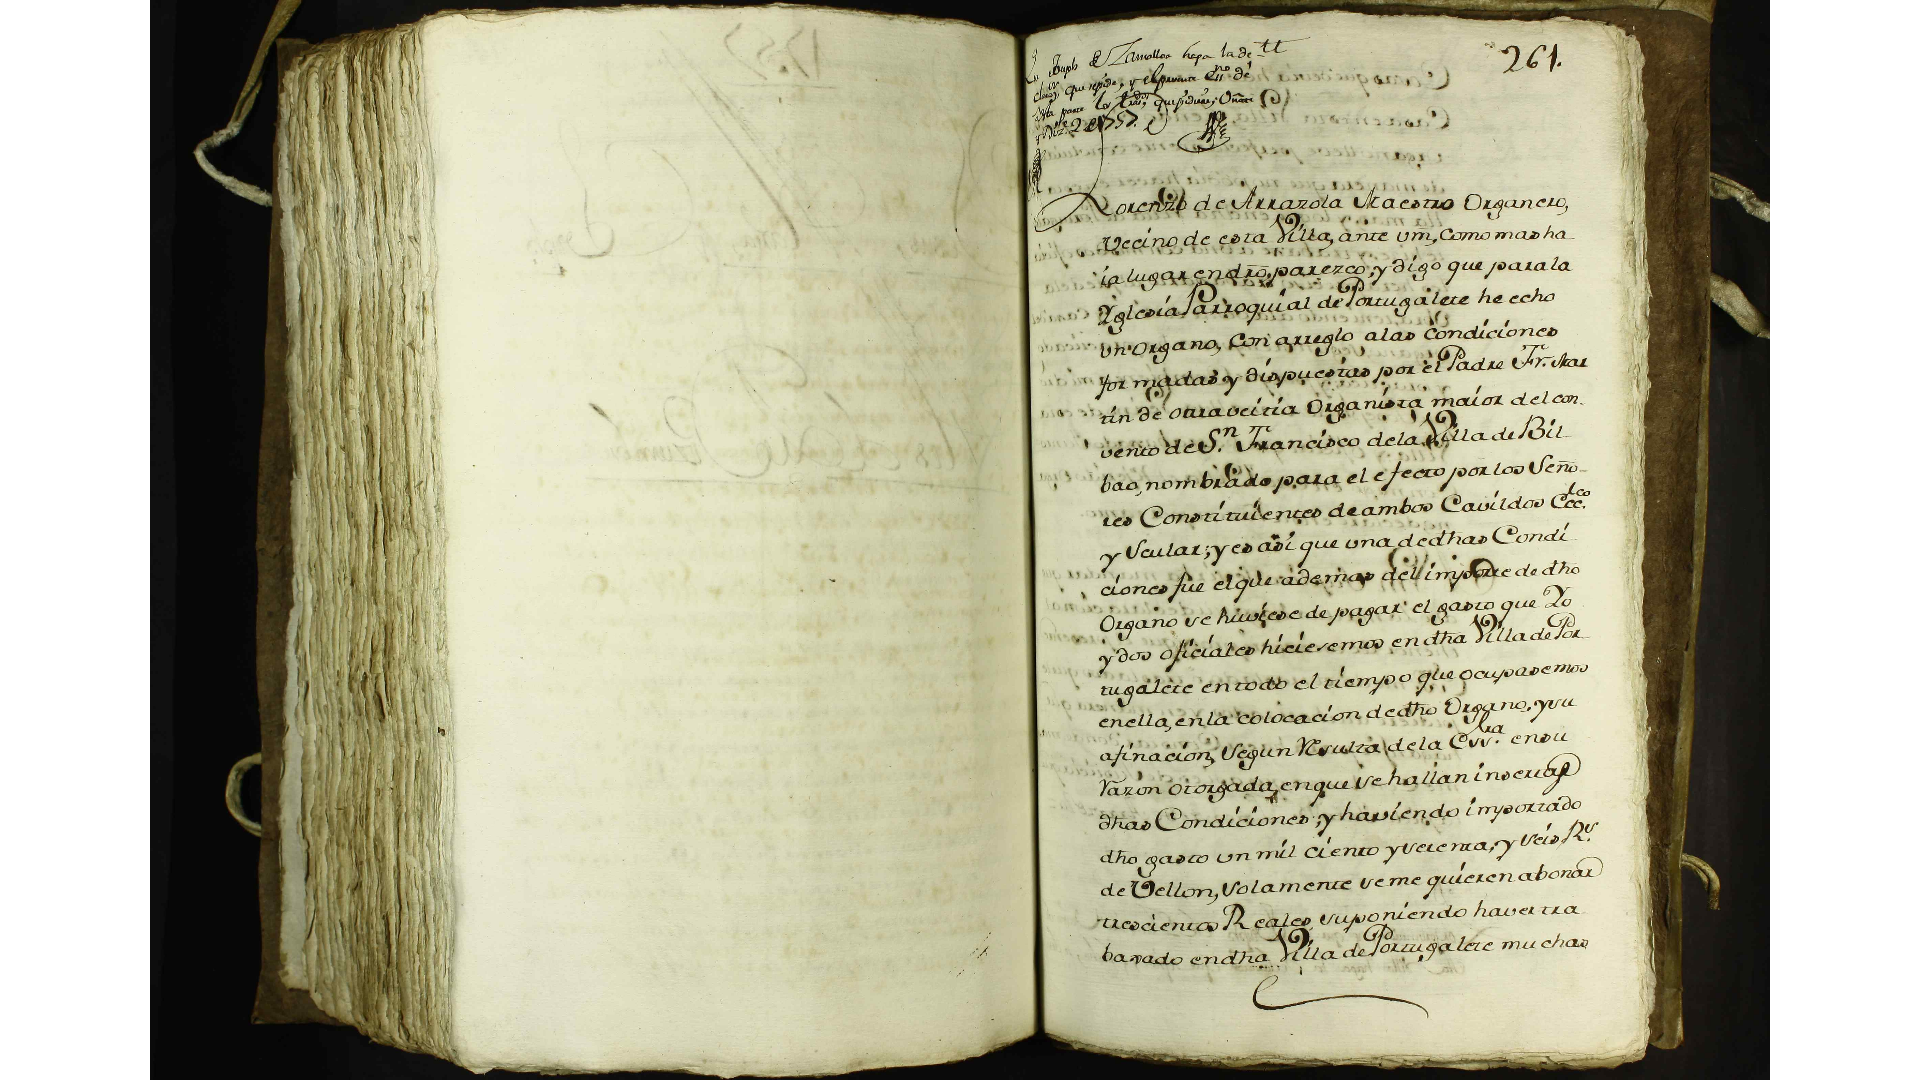 261.
Joseph de Zamalloa haga la de
que se pide, y el presente
parte los que pidiere; Oñati
2 de 1757.
Lorenzo de Arrazola Maestro Organero,
vecino de esta Villa, ante vm, como mas ha
ia lugar en dro, parezco, y digo que para la
Yglesia Parroquial de Portugalete he echo
un organo, con arreglo a las condiciones
formadas y dispuestas por el Padre Fr. Mar
tin de otraveitia Organista maior del con-
vento de Sn. Francisco de la Villa de Bil
bao, nombrado para el efecto por los Seño-
res Constituientes de ambos Cavildos Ecc.co
y Secular; y es asi que una de dhas Condi
ciones fue el que ademas del importe de dho
Organo se huviese de pagar el gasto que Yo
y dos oficiales hiciesemos en dha Villa de Por
tugalete en todo el tiempo que ocupasemos
en ella, en la colocacion de dho Organo, y su
afinacion, segun Resulta de la Essra. en su
razon otorgada, en que se hallan insertas
dhas Condiciones; y haviendo importado
dho gasto un mil ciento y setenta, y seis Rs.
de Vellon, solamente se me quieren abonar
trescientos Reales suponiendo haver tra
bajado en dha Villa de Portugalete muchas